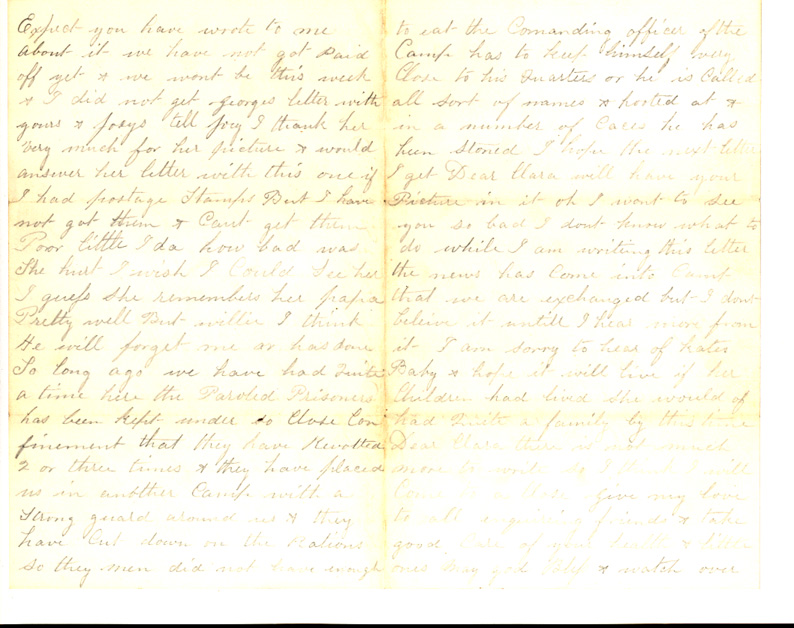 Expect you have wrote to me
about it we have not got Paid
off yet & we wont be this week
& I did not get georges letter with
yours & Josys tell Joey I thank her
very much for her picture & would
answer her letter with this one if
I had postage Stamps But I have
not got them & Cant get them
Poor little Ida how bad was
She hurt I wish I Could See her
I guess She remembers her papa
Pretty well But willie I think
He will forget me or has done
So long ago we have had Quite
a time here the Paroled Prisoners
has been kept under so Close Con
finement that they have Revolted
2 or three times & they have placed
us in another Camp with a
Strong guard around us & they
have Cut down on the Rations
So they men did not have enough
to eat the Comanding officer of the
Camp has to keep himself very
Close to his Quarters or he is Called
all sort of names & hooted at &
in a number of Cases he has
been stoned I hope the next letter
I get Dear Clara will have your
Picture in it oh I want to see
you so bad I dont know what to
do while I am writing this letter
the news has Come into Camp
that we are exchanged but I dont
beleive it untill I hear more from
it I am sorry to hear of Kates
Baby & hope it will live if her
Children had lived She would of
had Quite a family by this time
Dear Clara there is not much
more to write so I I will
Come to a Close give my love
to all enquiring friends & take
good Care of your health &
ones May god Bless & watch over